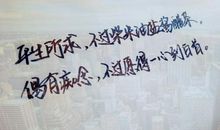 平生所求，不过柴米油盐安稳，
偶有疾念，不过愿得一心到白首。